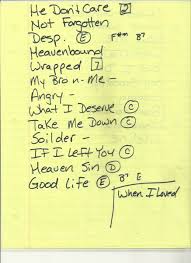 He Don't Care 2
Not Forgotten
Desp. E F#m B7
Heavenbound
Wrapped 7
My Bro n- Me -
Angry -
What I Deserve C
Take Me Down C
Soilder -
If I Left You C
Heaven Sin D
Good Life E B7 E
When I Loved